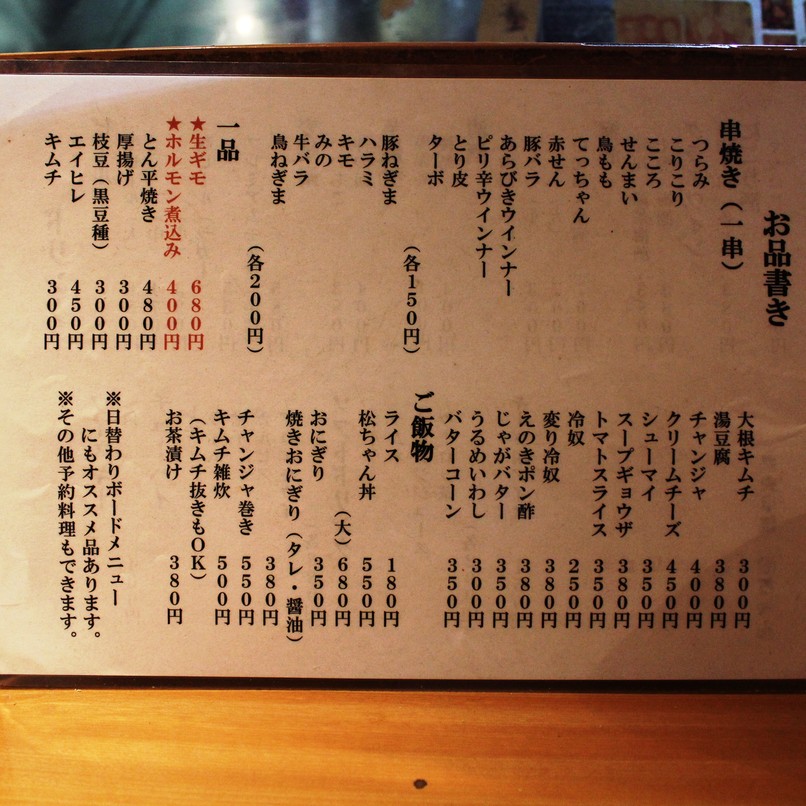 お品書き
串焼き（一串）
つらみ
こりこり
こころ
せんまい
鳥もも
てっちゃん
赤せん
豚バラ
あらびきウインナー
ピリ辛ウインナー
とり皮
ターボ
（各150円）
豚ねぎま
ハラミ
キモ
みの
牛バラ
鳥ねぎま
（各200円）
一品
★生ギモ 680円
★ホルモン煮込み 400円
とん平焼き 480円
厚揚げ 300円
枝豆（黒豆種） 300円
エイヒレ 450円
キムチ 300円
大根キムチ 300円
湯豆腐 380円
チャンジャ 400円
クリームチーズ 450円
シューマイ 350円
スープギョウザ 380円
トマトスライス 350円
冷奴 250円
変り冷奴 380円
えのきポン酢 380円
じゃがバター 350円
うるめいわし 300円
バターコーン 350円
ご飯物
ライス 180円
松ちゃん丼 550円
（大） 680円
おにぎり 350円
焼きおにぎり（タレ・醤油）
380円
チャンジャ巻き 550円
キムチ雑炊 500円
（キムチ抜きもOK）
お茶漬け 380円
※日替わりボードメニュー
にもオススメ品あります。
※その他予約料理もできます。